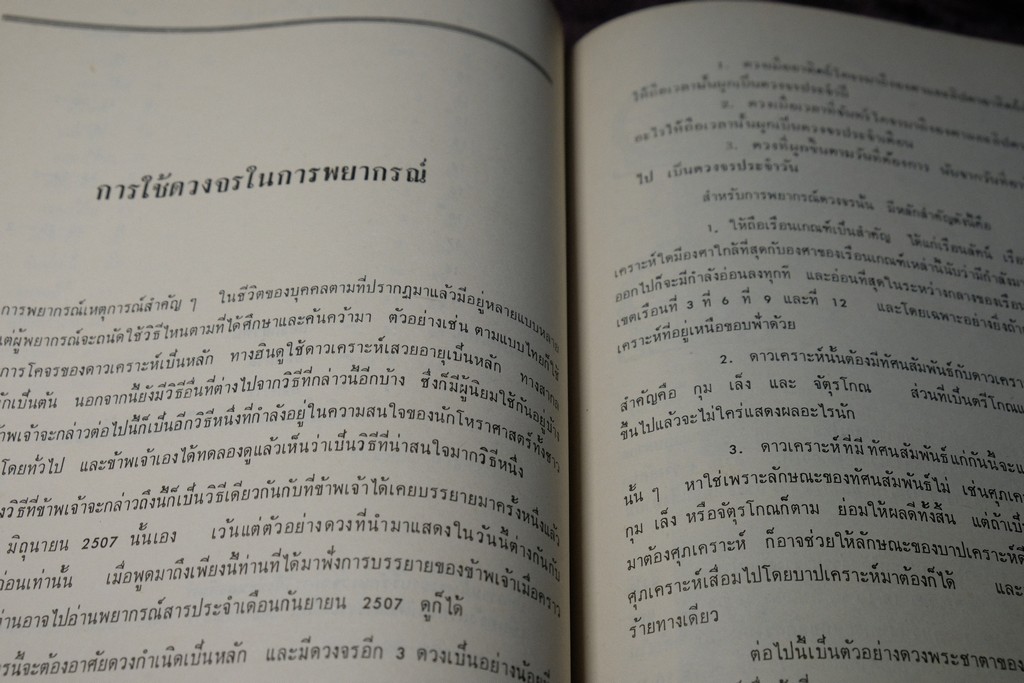 การใช้ดวงจรในการพยากรณ์
การพยากรณ์เหตุการณ์สำคัญ ๆ ในชีวิตของบุคคลตามที่ปรากฏมาแล้วมีอยู่หลายแบบหลาย
แต่ผู้พยากรณ์จะถนัดใช้วิธีไหนตามที่ได้ศึกษาและค้นคว้ามา ตัวอย่างเช่น ตามแบบไทยก็ใช้
การโคจรของดาวเคราะห์เป็นหลัก ทางฮินดูใช้ดาวเคราะห์เสวยอายุเป็นหลัก ทางสากล
เป็นต้น นอกจากนี้ยังมีวิธีอื่นที่ต่างไปจากวิธีที่กล่าวนี้อีกบ้าง ซึ่งก็มีผู้นิยมใช้กันอยู่บ้าง
พเจ้าจะกล่าวต่อไปนี้ก็เป็นอีกวิธีหนึ่งที่กำลังอยู่ในความสนใจของนักโหราศาสตร์ทั้งชาว
โดยทั่วไป และข้าพเจ้าเองได้ทดลองดูแล้วเห็นว่าเป็นวิธีที่น่าสนใจมากวิธีหนึ่ง
วิธีที่ข้าพเจ้าจะกล่าวถึงนี้ก็เป็นวิธีเดียวกันกับที่ข้าพเจ้าได้เคยบรรยายมาครั้งหนึ่งแล้ว
มิถุนายน 2507 นั้นเอง เว้นแต่ตัวอย่างดวงที่นำมาแสดงในวันนี้ต่างกันกับ
ก่อนเท่านั้น เมื่อพูดมาถึงเพียงนี้ท่านที่ได้มาฟังการบรรยายของข้าพเจ้าเมื่อคราว
ท่านอาจไปอ่านพยากรณ์สารประจำเดือนกันยายน 2507 ดูก็ได้
รนี้จะต้องอาศัยดวงกำเนิดเป็นหลัก และมีดวงจรอีก 3 ดวงเป็นอย่างน้อยที่
1.
2.
3. ดวงที่ผูกขึ้นตามวันที่ต้องการ นับจากวันที่
ไป เป็นดวงจรประจำวัน
สำหรับการพยากรณ์ดวงจรนั้น มีหลักสำคัญดังนี้คือ
1. ให้ถือเรือนเกณฑ์เป็นสำคัญ ได้แก่เรือนลัคน์ เรือ
เคราะห์ใดมีองศาใกล้ที่สุดกับองศาของเรือนเกณฑ์เหล่านี้นับว่ามีกำลังมา
ออกไปก็จะมีกำลังอ่อนลงทุกที และอ่อนที่สุดในระหว่างกลางของเรือน
เขตเรือนที่ 3 ที่ 6 ที่ 9 และที่ 12 และโดยเฉพาะอย่างยิ่งถ้า
เคราะห์ที่อยู่เหนือขอบฟ้าด้วย
2. ดาวเคราะห์นั้นต้องมีทัศนสัมพันธ์กับดาวเครา
สำคัญคือ กุม เล็ง และ จัตุรโกณ ส่วนที่เป็นตรีโกณแ
ขึ้นไปแล้วจะไม่ใคร่แสดงผลอะไรนัก
3. ดาวเคราะห์ที่มีทัศนสัมพันธ์แก่กันนี้จะแ
นั้น ๆ หาใช่เพราะลักษณะของทัศนสัมพันธ์ไม่ เช่นศุภเค
กุม เล็ง หรือจัตุรโกณก็ตาม ย่อมให้ผลดีทั้งสิ้น แต่ถ้าเป็
มาต้องศุภเคราะห์ ก็อาจช่วยให้ลักษณะของบาปเคราะห์ดี
ศุภเคราะห์เสื่อมไปโดยบาปเคราะห์มาต้องก็ได้ และ
ร้ายทางเดียว
ต่อไปนี้เป็นตัวอย่างดวงพระชาตาของ